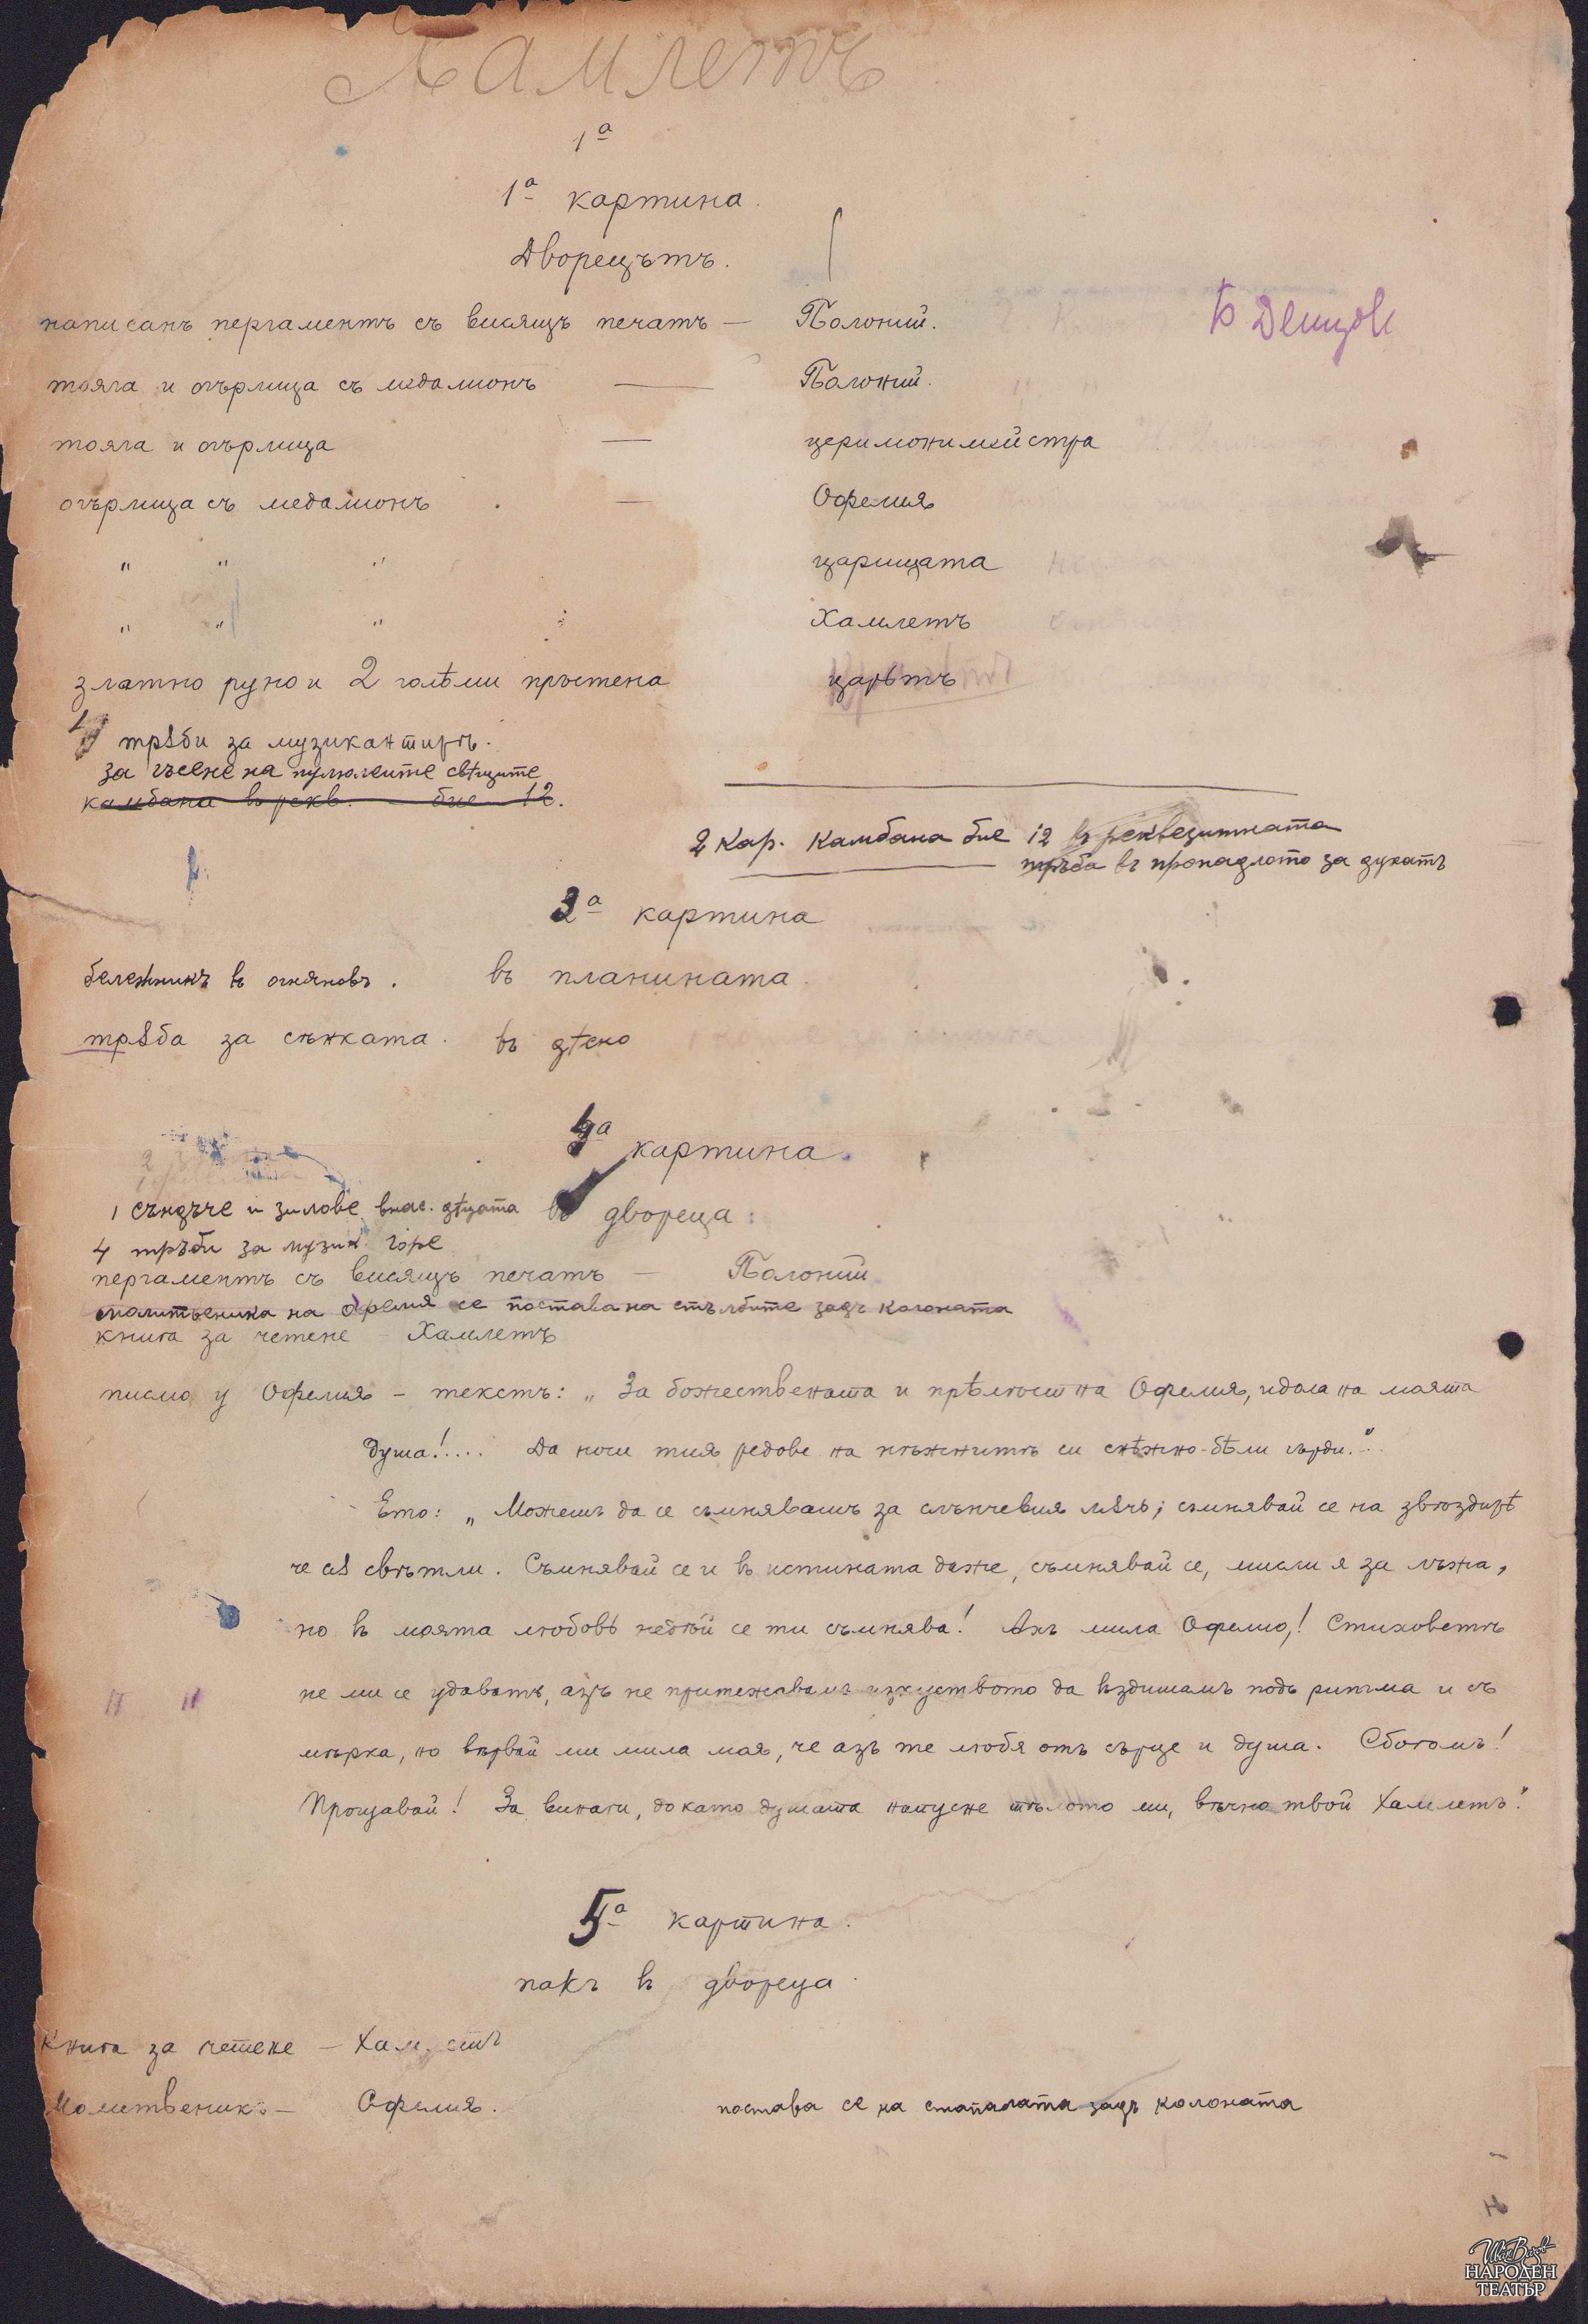 Хамлетъ
1а
1а картина.
Дворецътъ.
написанъ пергаментъ съ висящъ печатъ — Полоний.
Б Денизов
тояга и огърлица съ медалионъ — Полоний.
тояга и огърлица — церимонимейстра
огърлица съ медалионъ — Офелия
" " " царицата
" " " Хамлетъ
златно руно и 2 голѣми пръстена царьтъ
4 трѫби за музикантитѣ.
за гъсене на свѣщите
камбана въ рекв. бие 12.
2 Кар. Камбана бие 12 въ реквезитната
тръба въ пропадлото за духатъ
3а картина
бележникъ въ огняновъ. въ планината.
трѫба за сѣнката. въ дѣсно
4а картина
1 сѫндъче и зилове внас. дѣцата въ двореца.
4 тръби за музик горе
пергаментъ съ висящъ печатъ — Полоний
молитвеника на Офелия се постава на стълбите задъ колоната
книга за четене — Хамлетъ
писмо у Офелия — текстъ: „За божествената и прѣлюстна Офелия, идола на моята
душа!... Да носи тия редове на нѣжнитѣ си снѣжно-бѣли гърди."..
Ето: „Можешъ да се съмнявашъ за слънчевия лѫчъ; съмнявай се на звѣздитѣ
че сѫ свѣтли. Съмнявай се и въ истината даже, съмнявай се, мисли я за лъжа,
но въ моята любовь недѣй се ти съмнява! Ахъ мила Офелио,! Стиховетѣ
не ми се удаватъ, азъ не притежавамъ изкуството да въздишамъ подъ ритъма и съ
мѣрка, но вѣрвай ми мила моя, че азъ те любя отъ сърце и душа. Сбогомъ!
Прощавай! За винаги, докато душата напусне тѣлото ми, вѣчно твой Хамлетъ."
5а картина.
пакъ въ двореца.
Книга за четене — Хамлетъ
Молитвеникъ — Офелия.
постава се на стъпалата задъ колоната
Иван Вазов
НАРОДЕН
ТЕАТЪР